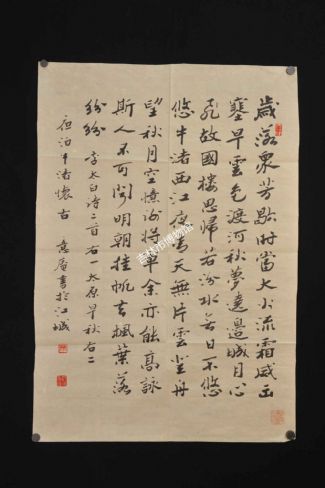 歲落眾芳歇時當大火流霜威出
塞早雲色渡河秋夢遶邊城月心
飛故國樓思歸若汾水無日不悠
悠牛渚西江夜青天無片雲登舟
望秋月空憶謝將軍余亦能高詠
斯人不可聞明朝挂帆去楓葉落
紛紛 李太白詩二首右一太原早秋右二
夜泊牛渚懷古 意庵書於江城
吉林市博物馆